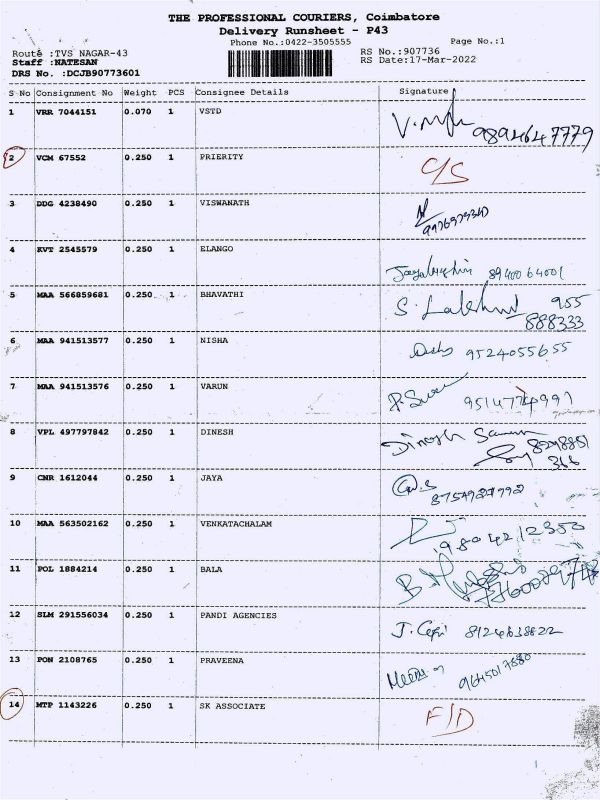 THE PROFESSIONAL COURIERS, Coimbatore
Delivery Runsheet - P43
Phone No.:0422-3505555 Page No.:1
Route :TVS NAGAR-43 RS No.:907736
Staff :NATESAN RS Date:17-Mar-2022
DRS No. :DCJB90773601
S No Consignment No Weight PCS Consignee Details Signature
1 VRR 7044151 0.070 1 VSTD
9894647779
2 VCM 67552 0.250 1 PRIERITY C/S
3 DDG 4238490 0.250 1 VISWANATH
4 KVT 2545579 0.250 1 ELANGO
8940064001
5 MAA 566859681 0.250 1 BHAVATHI S. 955
888333
6 MAA 941513577 0.250 1 NISHA 9524055655
7 MAA 941513576 0.250 1 VARUN
8 VPL 497797842 0.250 1 DINESH Dinesh
366
9 CNR 1612044 0.250 1 JAYA
10 MAA 563502162 0.250 1 VENKATACHALAM
11 POL 1884214 0.250 1 BALA
12 SLM 291556034 0.250 1 PANDI AGENCIES 8124638822
13 PON 2108765 0.250 1 PRAVEENA 9645017880
14 MTP 1143226 0.250 1 SK ASSOCIATE F/D